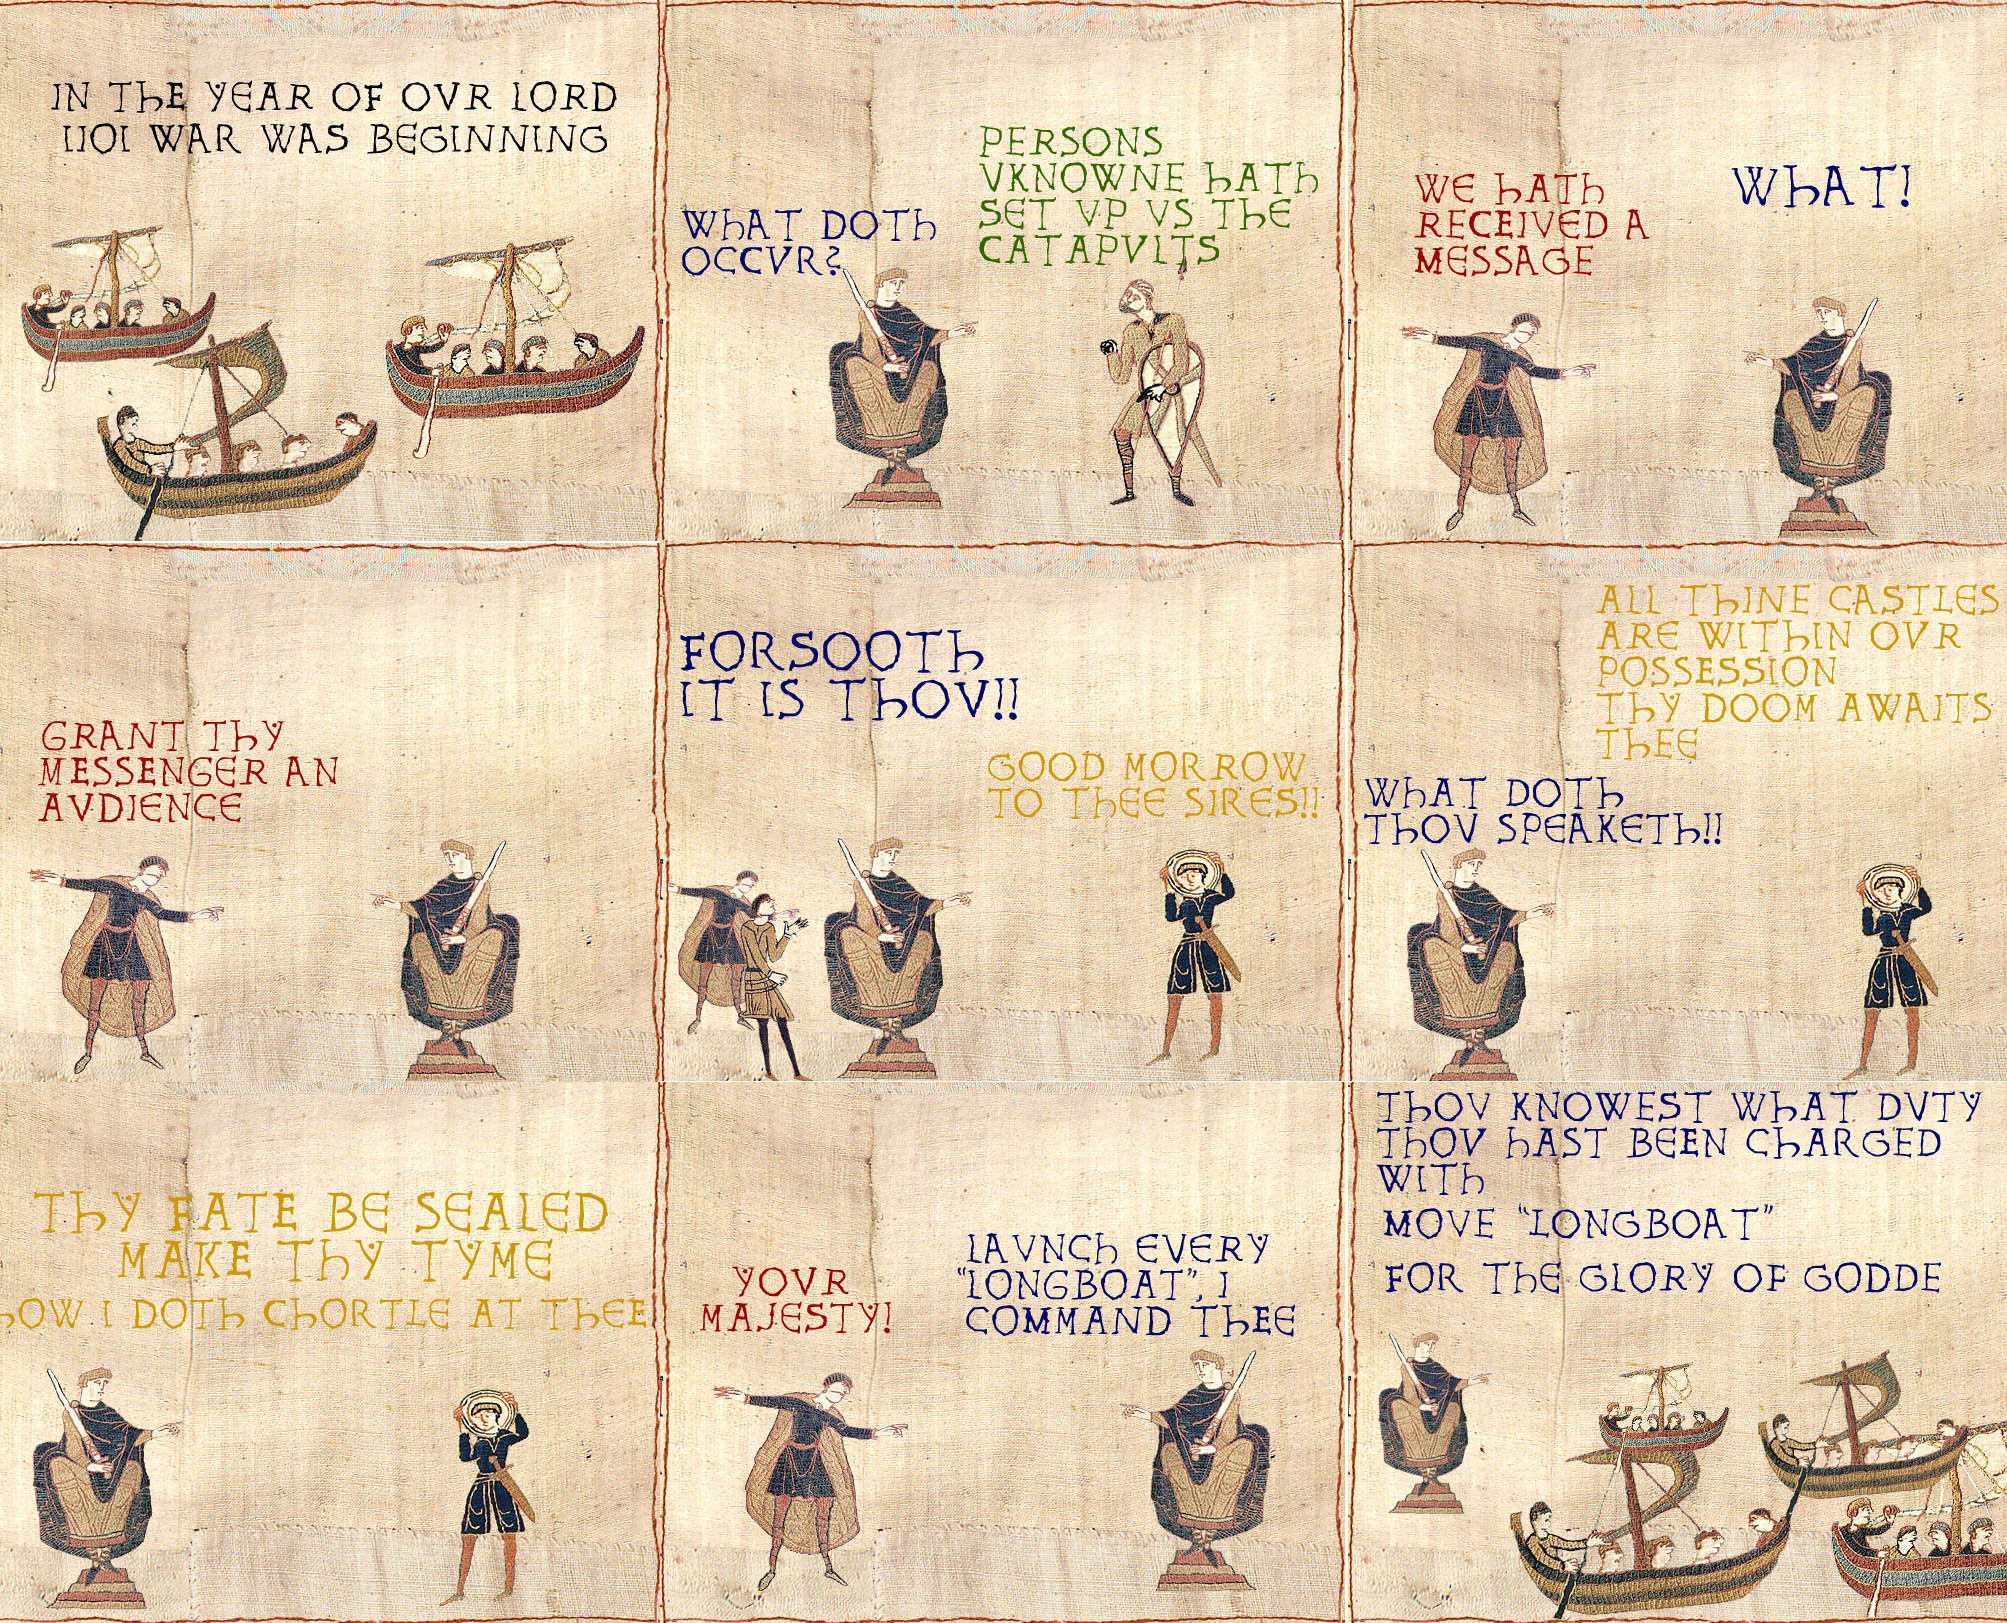 IN THE YEAR OF OVR LORD
1101 WAR WAS BEGINNING
WHAT DOTH
OCCVR?
PERSONS
VKNOWNE HATH
SET VP VS THE
CATAPVLTS
WE HATH
RECEIVED A
MESSAGE
WHAT!
GRANT THY
MESSENGER AN
AVDIENCE
FORSOOTH
IT IS THOV!!
GOOD MORROW
TO THEE SIRES!!
ALL THINE CASTLES
ARE WITHIN OVR
POSSESSION
THY DOOM AWAITS
THEE
WHAT DOTH
THOV SPEAKETH!!
THY FATE BE SEALED
MAKE THY TYME
HOW I DOTH CHORTLE AT THEE!
YOVR
MAJESTY!
LAVNCH EVERY
"LONGBOAT", I
COMMAND THEE
THOV KNOWEST WHAT DVTY
THOV HAST BEEN CHARGED
WITH
MOVE "LONGBOAT"
FOR THE GLORY OF GODDE